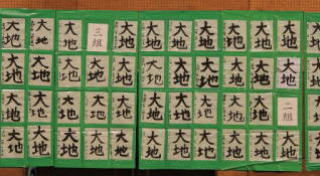 大地 大地 大地 三組 大地 大地 大地 大地 大地 大地 大地 大地
大地 大地 大地 大地 大地 大地 大地 大地 大地 大地 大地 大地
大地 大地 大地 大地 大地 大地 大地 大地 大地 大地 二組 大地
大地 大地 大地 大地 大地 大地 大地 大地 大地 大地 大地 大地